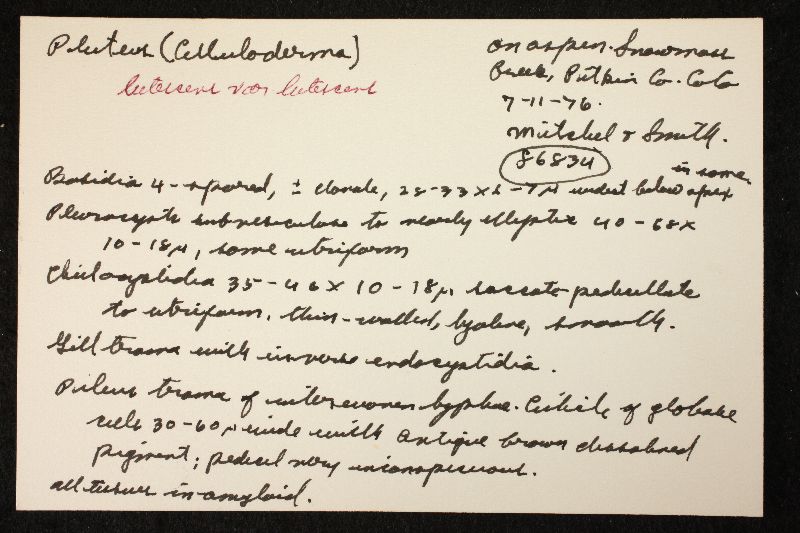 Pluteus (Celluloderma)
lutescens var lutescens
on aspen. Snowmass
Creek, Pitkin Co. Colo
7-11-76.
Mitchel & Smith.
86834
Basidia 4-spored, ± clavate, 28-33 x 6-7µ widest below apex
in some.
Pleurocysts subvesiculose to nearly elliptic 40-68 x
10-18µ, some utriform
Cheilocystidia 35-46 x 10-18µ saccate-pedicellate
to utriform, thin-walled, hyaline, smooth.
Gill trama with inverse endocystidia.
Pileus trama of interwoven hyphae. Cuticle of globose
cells 30-60µ wide with antique brown dissolved
pigment; pedicel very inconspicuous.
all tissues inamyloid.